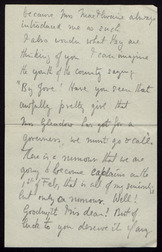 became Mrs MacIlwaine always
introduced me as such
I also wonder what they are
thinking of you. I can imagine
the youth of the county saying
"By Jove! Have you seen that
awfully pretty girl that
Mrs has got for a
governess, we must go & call.
There is a rumour that we are
going to become captains on the
1st of Feb, that is all of my seniority
but only a rumour. Well!
Goodnight Miss dear! Best of
luck to you deserve it if any